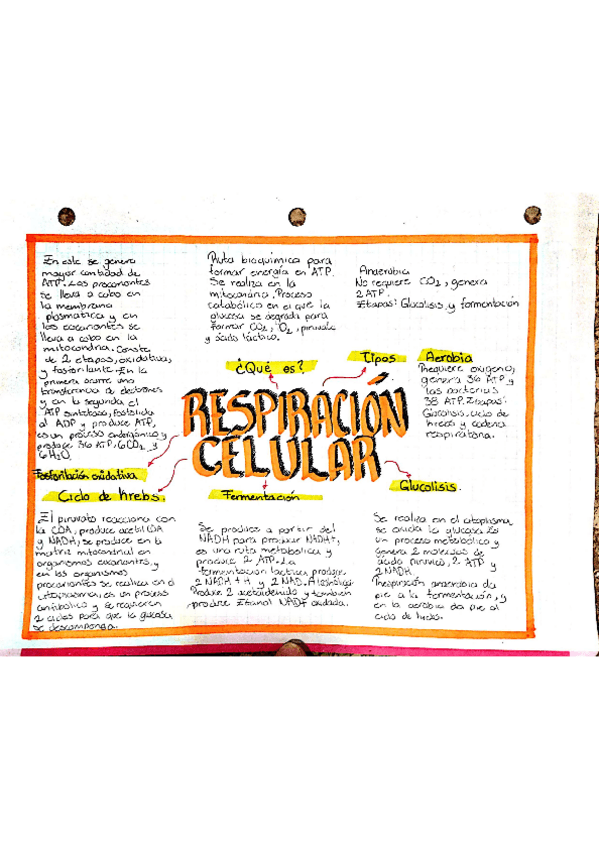 ¿Qué es?
Ruta bioquímica para
formar energía en ATP.
Se realiza en la
mitocondria. Proceso
catabólico en el que la
glucosa se degrada para
formar CO2, O2, piruvato
y ácido láctico.
Tipos
Anaerobia
No requiere CO2, genera
2 ATP.
Etapas: Glucolisis y fermentación
Aerobia
Requiere oxígeno,
genera 36 ATP y
las bacterias
38 ATP. Etapas:
Glucolisis, ciclo de
krebs y cadena
respiratoria.
RESPIRACIÓN
CELULAR
En este se genera
mayor cantidad de
ATP. Los procariontes
se lleva a cabo en
la membrana
plasmática y en
los eucariontes se
lleva a cabo en la
mitocondria. Consta
de 2 etapas, oxidativa,
y fosforilante. En la
primera ocurre una
transferencia de electrones
y en la segunda el
ATP sintetasa, fosforila
al ADP y produce ATP,
es un proceso endergónico y
produce 36 ATP, 6CO2 y
6 H2O.
Fosforilación oxidativa
Ciclo de Krebs.
El piruvato reacciona con
la COA, produce acetil COA
y NADH, se produce en la
matriz mitocondrial en
organismos eucariontes, y
en los organismos
procariontes se realiza en el
citoplasma, es un proceso
anfibolico y se requieren
2 ciclos para que la glucosa
se descomponga.
Fermentación
Se produce a partir del
NADH para producir NADH+,
es una ruta metabolica y
produce 2 ATP. La
fermentación láctica produce
2 NADH + H y 2 NAD.
Produce 2 acetaldehido y también
produce Etanol NAD+ oxidada.
Glucolisis.
Se realiza en el citoplasma,
se oxida la glucosa. Es
un proceso metabólico y
genera 2 moleculas de
ácido pirúvico, 2 ATP y
2 NADH
Respiración anaerobia da
pie a la fermentación, y
en la aerobia da pie al
ciclo de krebs.